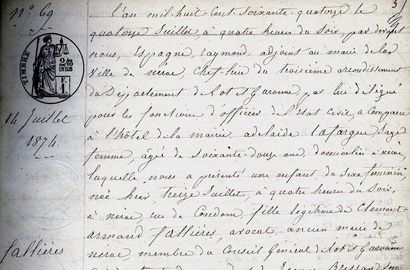 n° 69
L'an mil huit cent soixante quatorze le
quatorze Juillet à quatre heures du soir, par devant
nous, Espagne, Raymond, adjoint au maire de la
ville de nerac chef lieu du troisième arrondissement
du Département de Lot et Garonne, par lui délégué
pour les fonctions d'officier de l'état civil, a comparu
à l'hôtel de la mairie, adelaïde Lafargue sage
femme, âgée de soixante-douze ans, domiciliée à nérac,
laquelle nous a présenté une enfant, du sexe féminin,
née hier treize Juillet, à quatre heures du soir,
à nerac, rue de Condom, fille légitime de Clément
armand fallières, avocat, ancien maire de
nérac membre du Conseil Général de Lot et Garonne
TIMBRE
14 Juillet
1874.
fallières